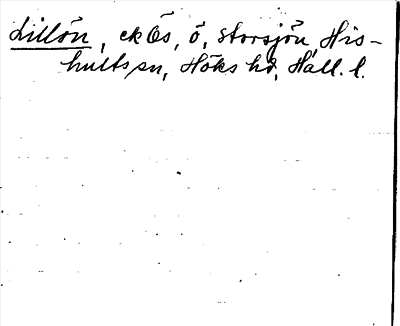 Lillön, ek Ös, ö, Storsjön, His-
hults sn, Höks hd, Hall. l.